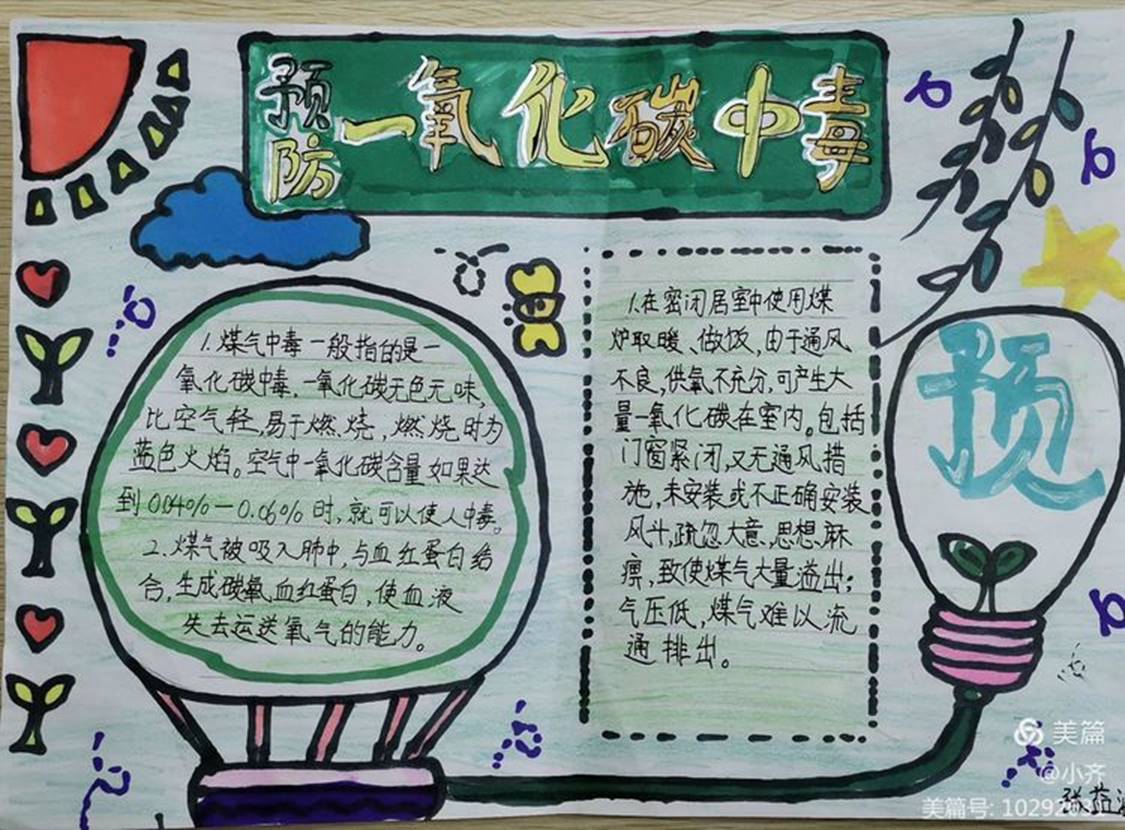 预防
一氧化碳中毒
1.煤气中毒一般指的是一
氧化碳中毒,一氧化碳无色无味,
比空气轻,易于燃烧,燃烧时为
蓝色火焰。空气中一氧化碳含量如果达
到0.04%—0.06%时,就可以使人中毒。
2.煤气被吸入肺中,与血红蛋白结
合,生成碳氧血红蛋白,使血液
失去运送氧气的能力。
1.在密闭居室中使用煤
炉取暖、做饭,由于通风
不良,供氧不充分,可产生大
量一氧化碳在室内。包括
门窗紧闭,又无通风措
施,未安装或不正确安装
风斗,疏忽大意,思想麻
痹,致使煤气大量溢出;
气压低,煤气难以流
通排出。
预
美篇
@小齐
美篇号: 10292
张